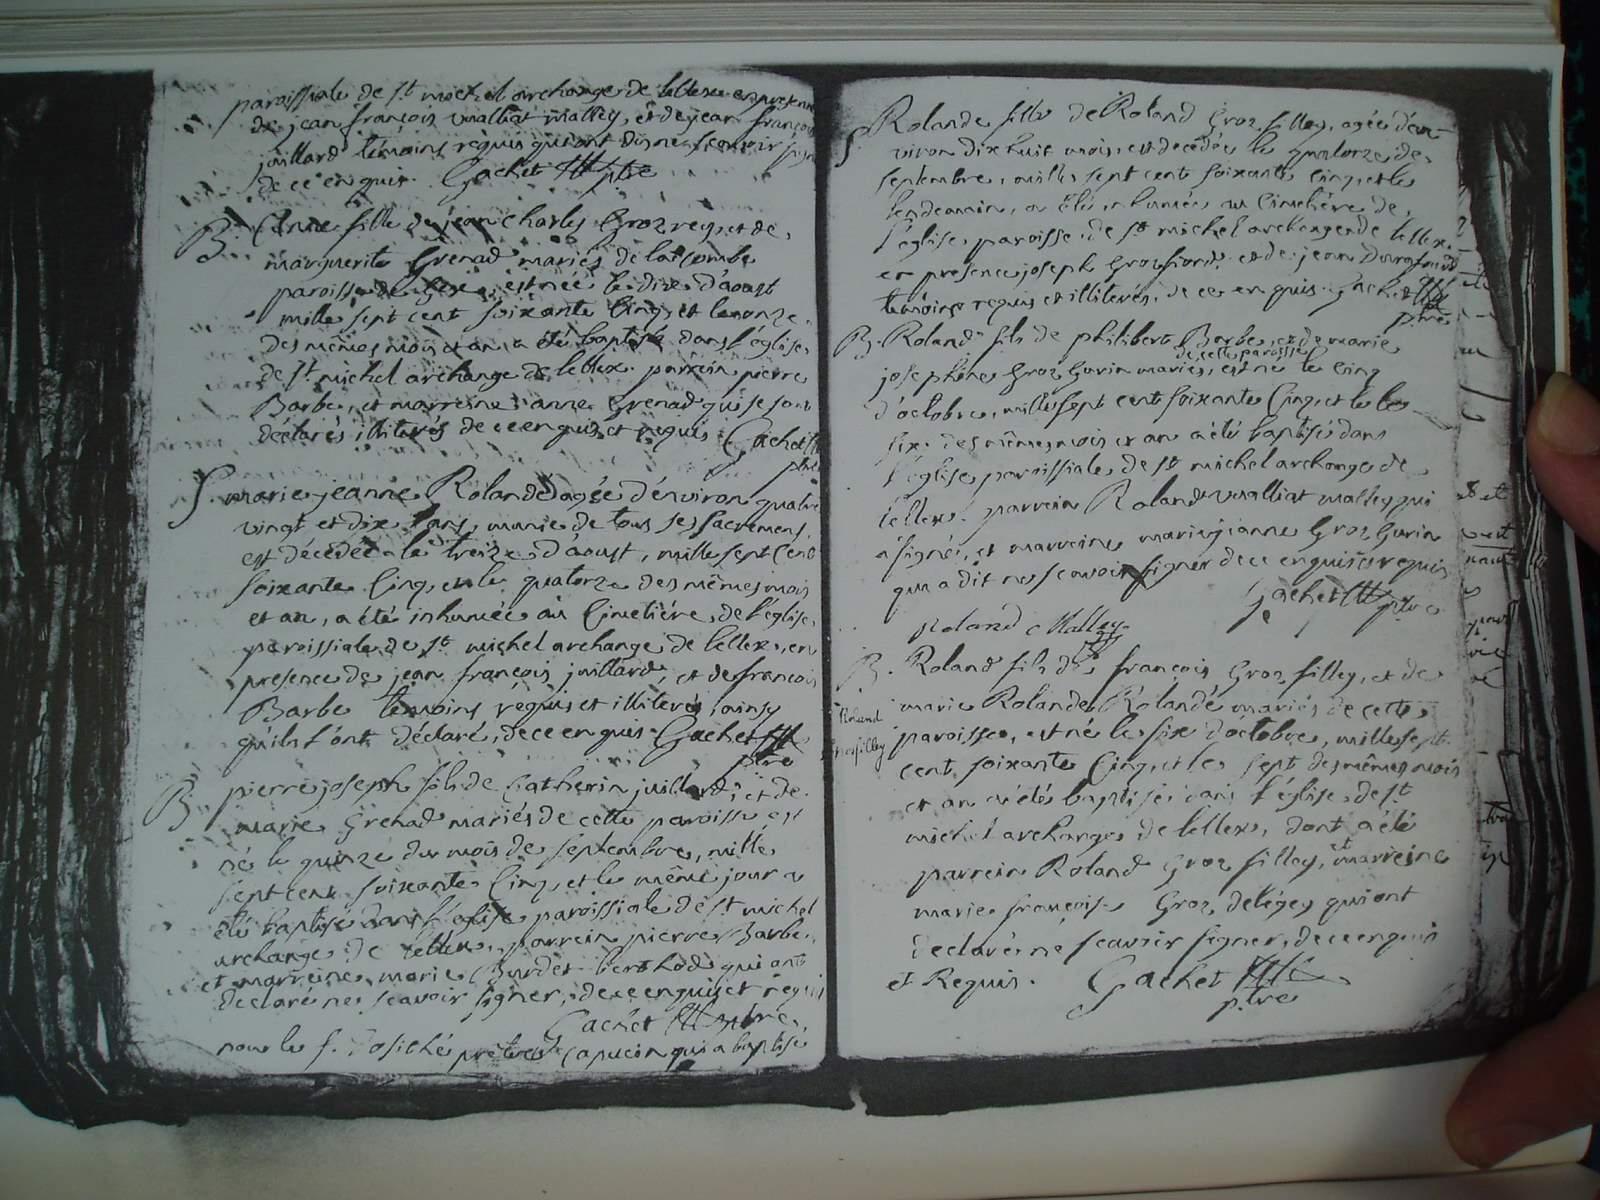 paroissiale de st michel archange de lellex en presence
de jean françois vualliat malley, et de jean françois
juillard témoins requis qui ont dit ne scavoir signer
de ce enquis. Gachet ptre
B Anne fille de jean charles Groz reys, et de
marguerite Grenad mariés de la Combe
paroisse de Gex, est née le dix d'aoust
mille sept cent soixante Cinq, et le onze
des mêmes mois et an a été baptisé dans l'église
de st michel archange de lellex. parrein pierre
Barbe, et marreine anne Grenad qui se sont
déclarés illiterés de ce enquis et requis. Gachet
ptre
S. marie jeanne Rolande agée d'environ quatre
vingt et dix ans, munie de tous ses sacremens,
est décédée le treize d'aoust, mille sept cent
soixante Cinq, et le quatorze des mêmes mois
et an, a été inhumée au Cimetiére de l'église
paroissiale de st michel archange de lellex, en
presence de jean françois juillard, et de francois
Barbe temoins requis et illiterés, ainsy
qu'ils l'ont déclaré, de ce enquis. Gachet
ptre
B. pierre joseph fils de Catherin juillard, et de
marie Grenad mariés de cette paroisse est
né le quinze du mois de septembre, mille
sept cent soixante Cinq, et le même jour a
été baptisé dans l'église paroissiale de st michel
archange de lellex, parrein pierre Barbe
et marreine marie Burdet berthod qui ont
declaré ne scavoir signer, de ce enquis et requis
Gachet ptre,
pour le f. prêtre Capucin qui a baptisé
S Rolande fille de Roland Groz filley, agée d'en-
viron dix huit mois, est decedée le quatorze de
septembre, mille sept cent soixante Cinq, et le
lendemain, a été inhumée au Cimetiére de
l'église paroisse de st michel archange de lellex.
en presence joseph Groz et de jean
temoins requis et illiterés, de ce enquis. Gachet
ptre
B. Roland fils de philibert Barbe, et de marie
de cette paroisse
josephine Groz Gurin mariés, est né le Cinq
d'octobre, mille sept cent soixante Cinq, et le
six des mêmes mois et an a été baptisé dans
l'église paroissiale de st michel archange de
lellex. parrein Roland vualliat malley qui
a signé, et marreine marie jeanne Groz Gurin
qui a dit ne scavoir signer de ce enquis et requis
Gachet ptre
Roland Malley
B. Roland fils de françois Groz filley, et de
marie Rolande Rolandé mariés de cette
Roland
paroisse, est né le six d'octobre, mille sept
grosfilley
cent soixante Cinq, et le sept des mêmes mois
et an a été baptisé dans l'église de st
michel archange de lellex, dont a été
parrein Roland Groz filley, et marreine
marie françoise Groz, deléges qui ont
declaré né scavoir signer, de ce enquis
et Requis. Gachet
ptre